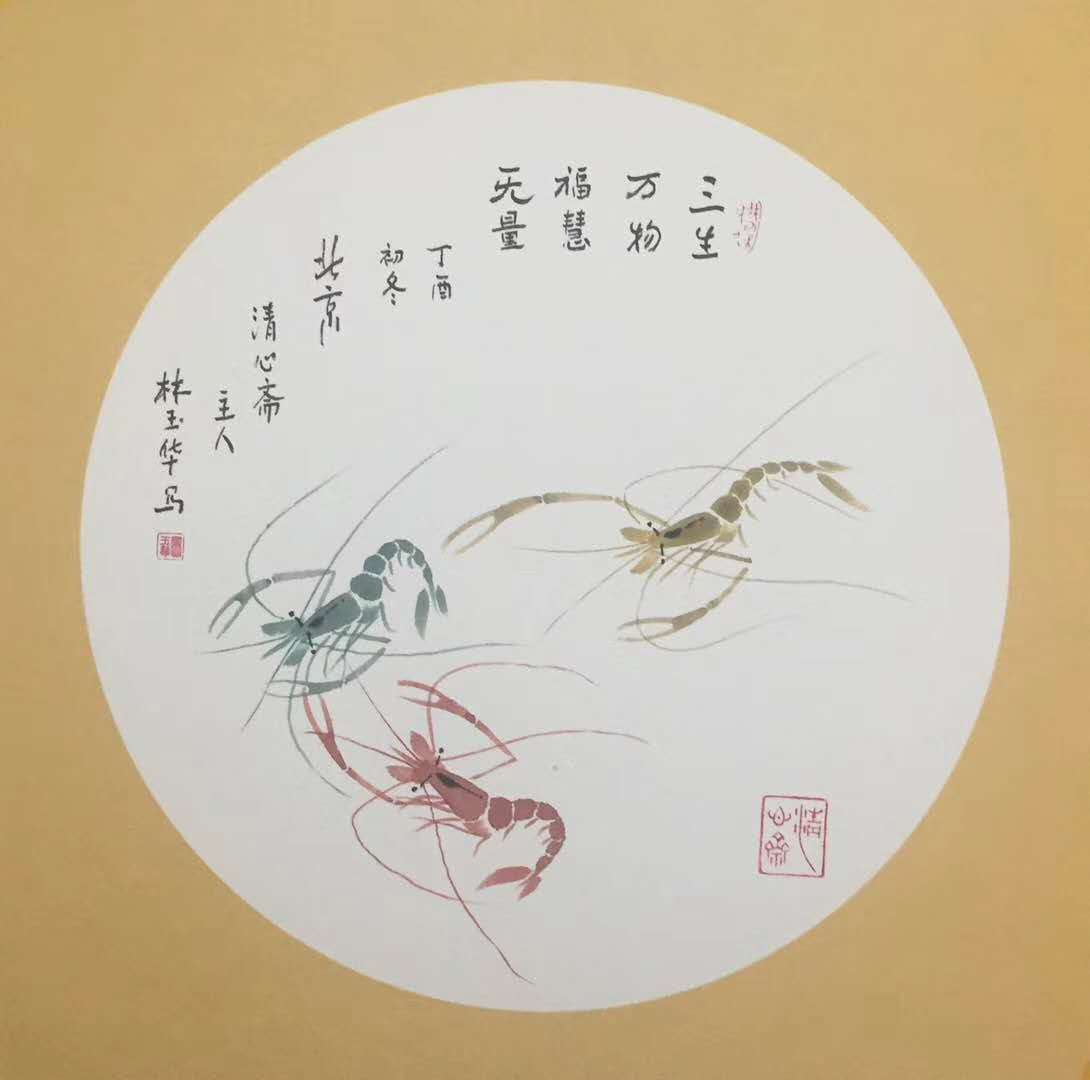 三生
万物
福慧
无量
丁酉
初冬
北京
清心斋
主人
林玉华写
清心斋